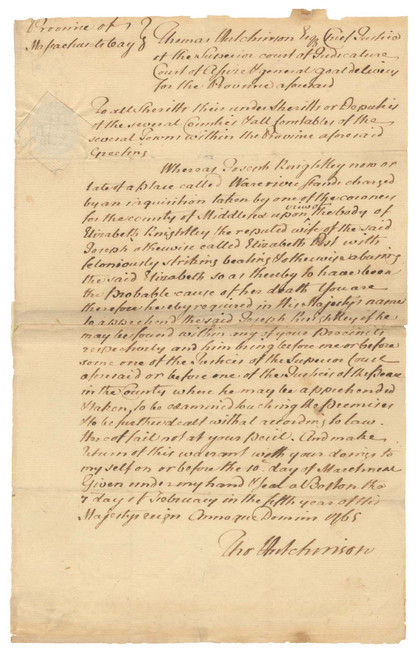 Province of
Massachusetts Bay
Thomas Hutchinson Esq Chief Justice
of the Superior court of Judicature
Court of Assize & general goal delivery
for the Province aforesaid
To all Sheriffs their under Sheriffs or Deputies
of the several Counties & all Constables of the
several Towns within the Province aforesaid
Greeting
Whereas Joseph Knightley now or
late of a place called stands charged
by an inquisition taken by one of the coroners
for the county of Middlesex upon view of the body of
Elizabeth Knightley the reputed wife of the said
Joseph otherwise called Elizabeth with
feloniously striking beating & otherwise abusing
the said Elizabeth so as thereby to have been
the Probable cause of her death You are
therefore hereby required in His Majesty's name
to apprehend the said Joseph Knightley if he
may be found within any of your Precincts
respectively and him bring before me or before
some one of the Justices of the Superior Court
aforesaid or before one of the Justices of the Peace
in the County where he may be apprehended
& taken, to be examined touching the Premises
& to be further dealt withal according to law.
Hereof fail not at your peril. And make
return of this warrant with your doings to
my self on or before the 10 day of March next
Given under my hand & seal at Boston the
7 day of February in the fifth year of his
Majestys reign Annoque Domini 1765
Tho Hutchinson